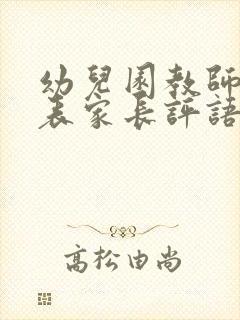 幼兒園教師
表家長評語
高松由尚